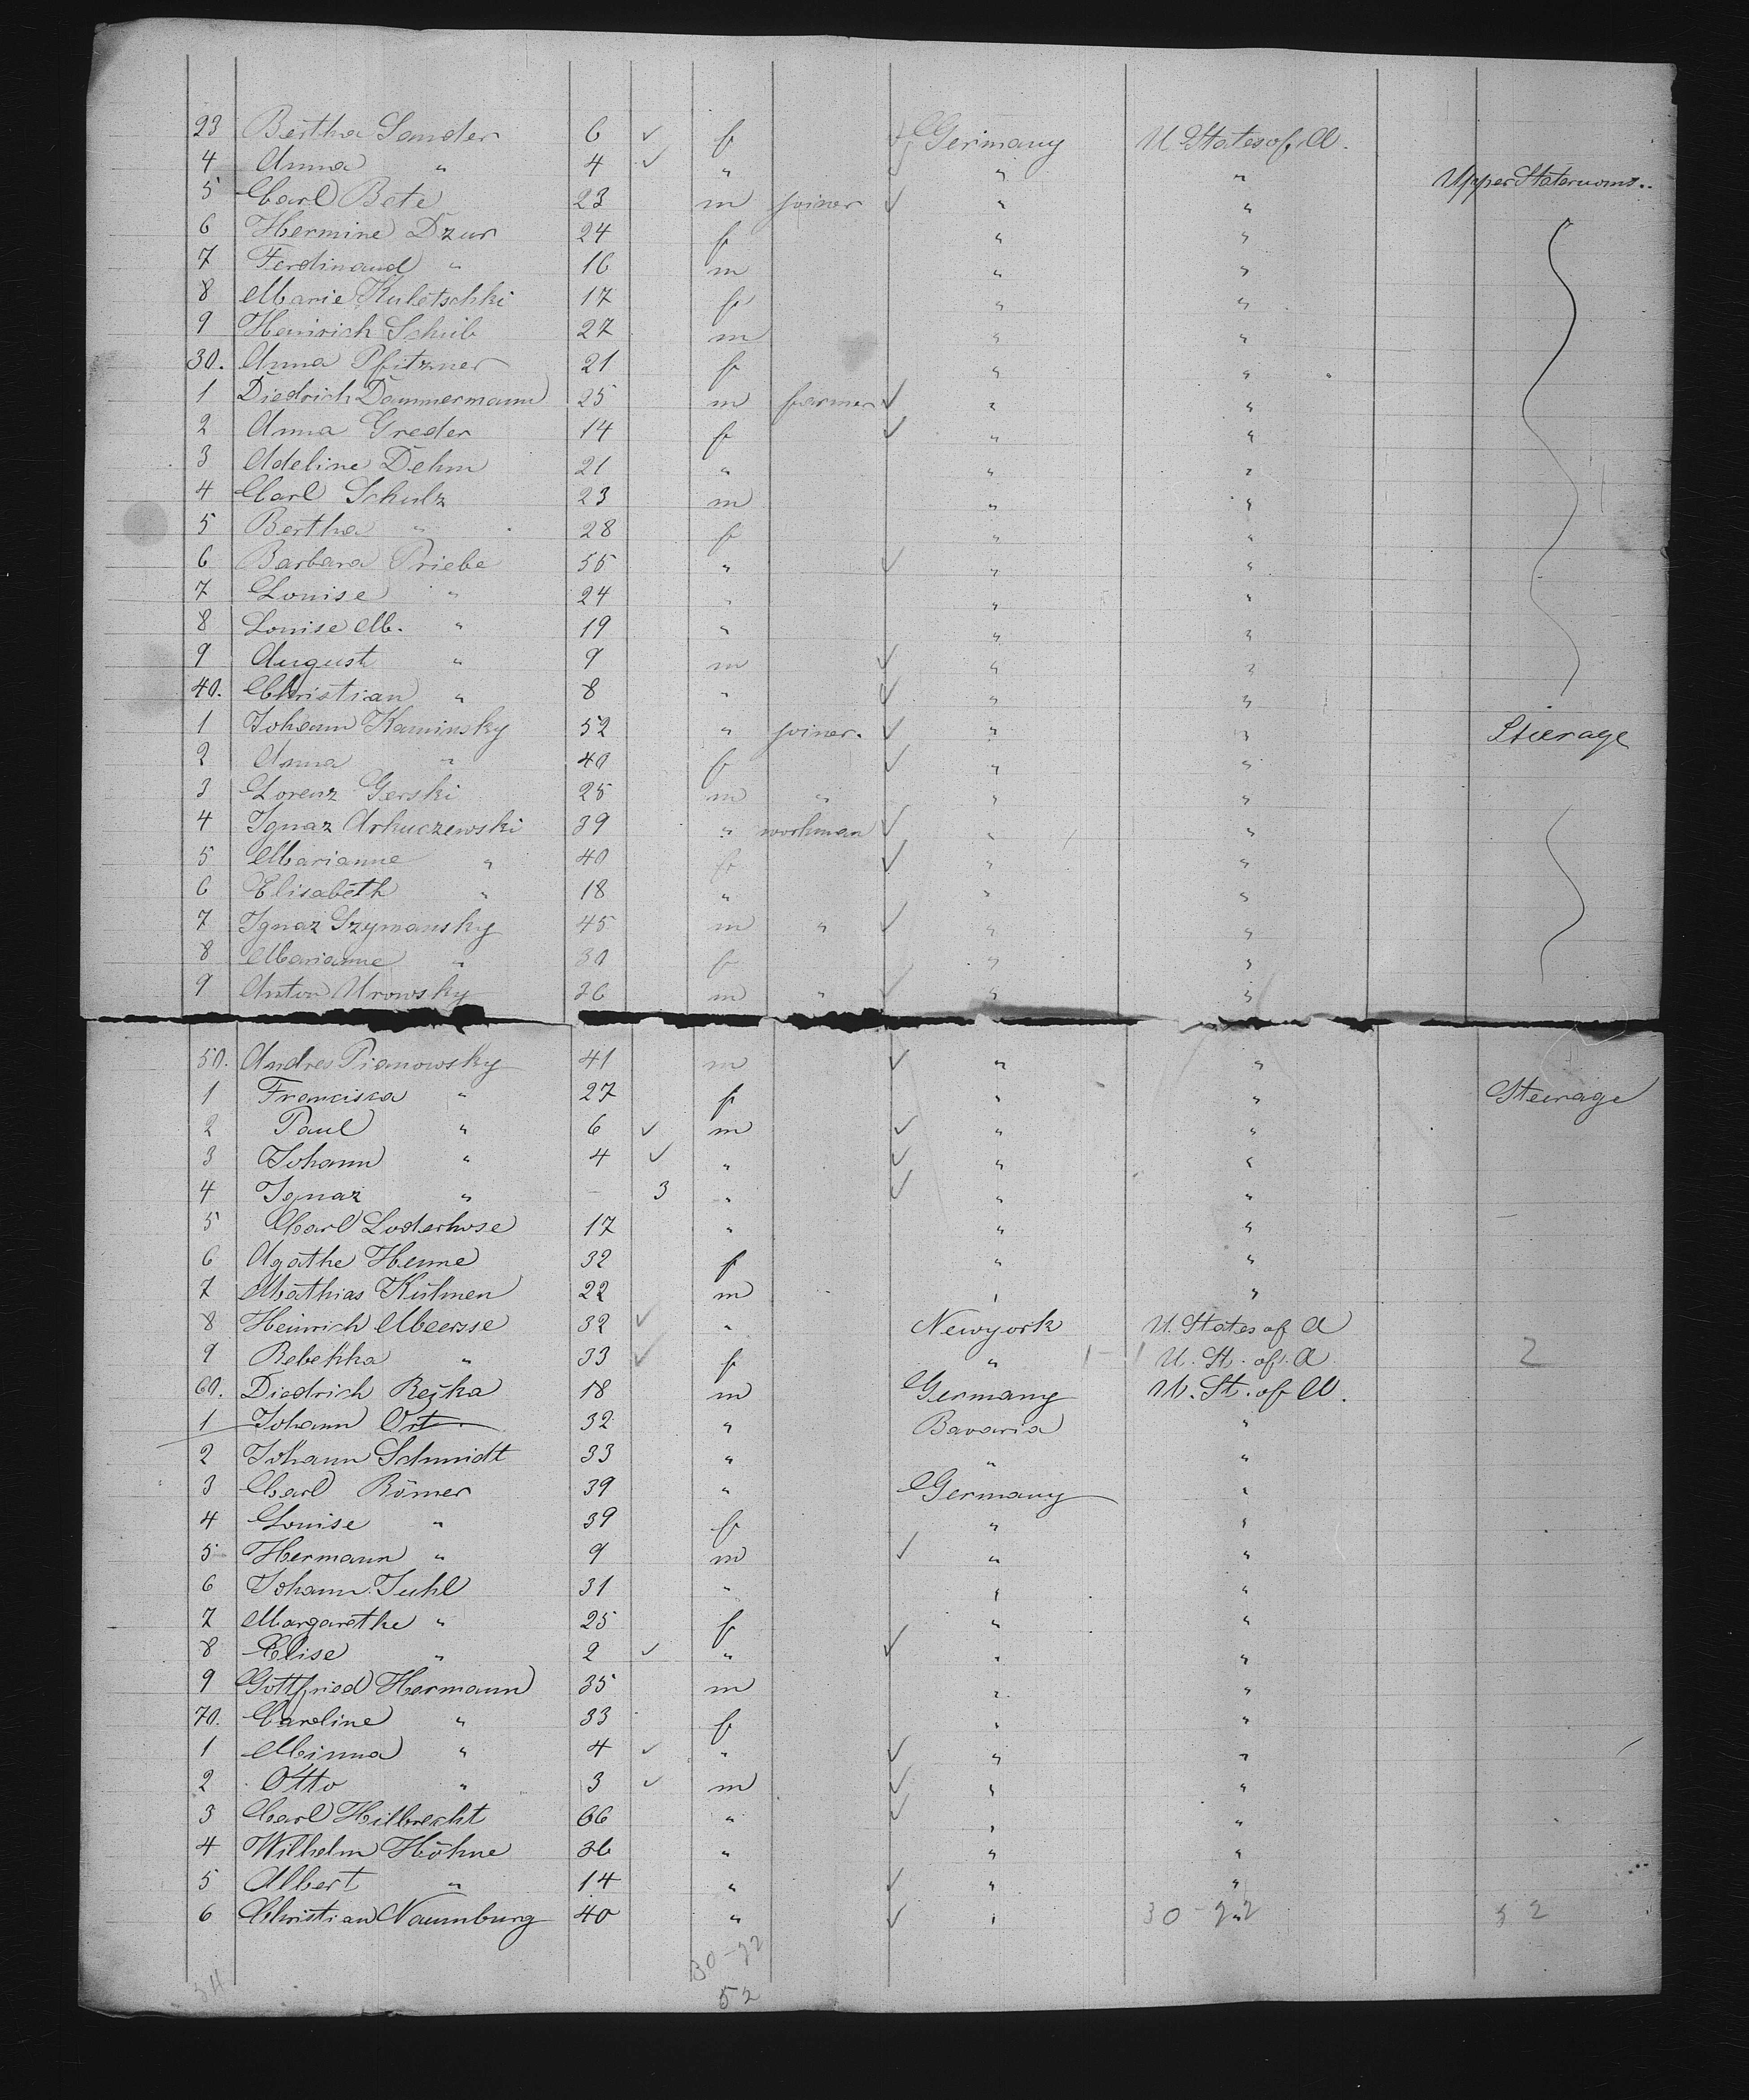 23 Bertha Sander 6 ✓ f ✓ Germany U States of A.
4 Anna " 4 ✓ " ✓ " " Upper Staterooms..
5 Carl Bete 23 m joiner ✓ " "
6 Hermine Dzur 24 f " "
7 Ferdinand " 16 m " "
8 Marie Kuletschki 17 f " "
9 Heinrich Scheib 27 m " "
30. Anna Pfitzner 21 f " "
1 Diedrich Dammermann 25 m farmer ✓ " "
2 Anna Greder 14 f ✓ " "
3 Adeline Dehm 21 " " "
4 Carl Schulz 23 m " "
5 Bertha " 28 f " "
6 Barbara Priebe 55 " ✓ " "
7 Louise " 24 " " "
8 Louise M. " 19 " " "
9 August " 9 m ✓ " "
40. Christian " 8 " ✓ " "
1 Johann Kaminsky 52 " joiner. ✓ " " Steerage
2 Anna " 40 f ✓ " "
3 Lorenz Gerski 25 m " " "
4 Ignaz Arkuczewski 39 " workman ✓ " "
5 Marianne " 40 f ✓ " "
6 Elisabeth " 18 " " "
7 Ignaz Szymansky 45 m " ✓ " "
8 Marianne " 30 f " "
9 Anton Urowsky 36 m " ✓ " "
50. Andres Pianowsky 41 m ✓ " "
1 Franciska " 27 f " " Steerage
2 Paul " 6 ✓ m ✓ " "
3 Johann " 4 ✓ " ✓ " "
4 Ignaz " - 3 " ✓ " "
5 Carl Loderhose 17 " " "
6 Agathe Henne 32 f " "
7 Mathias Külmen 22 m " "
8 Heinrich Meersse 32 ✓ " Newyork U. States of A
9 Rebekka " 33 ✓ f " 1-1 U. St. of. A 2
60. Diedrich Rejka 18 m Germany U. St. of A.
1 Johann Ort 32 " Bavaria "
2 Johann Schmidt 33 " " "
3 Carl Römer 39 " Germany "
4 Louise " 39 f " "
5 Hermann " 9 m ✓ " "
6 Johann Juhl 31 " " "
7 Margarethe " 25 f " "
8 Elise " 2 ✓ " ✓ " "
9 Gottfried Hermann 35 m " "
70. Caroline " 33 f " "
1 Minna " 4 ✓ " ✓ " "
2 Otto " 3 ✓ m ✓ " "
3 Carl Hilbrecht 66 " ✓ " "
4 Wilhelm Höhne 36 " " "
5 Albert " 14 " ✓ " "
6 Christian Naumburg 40 " ✓ " " 30-22 52
30-22
34 52